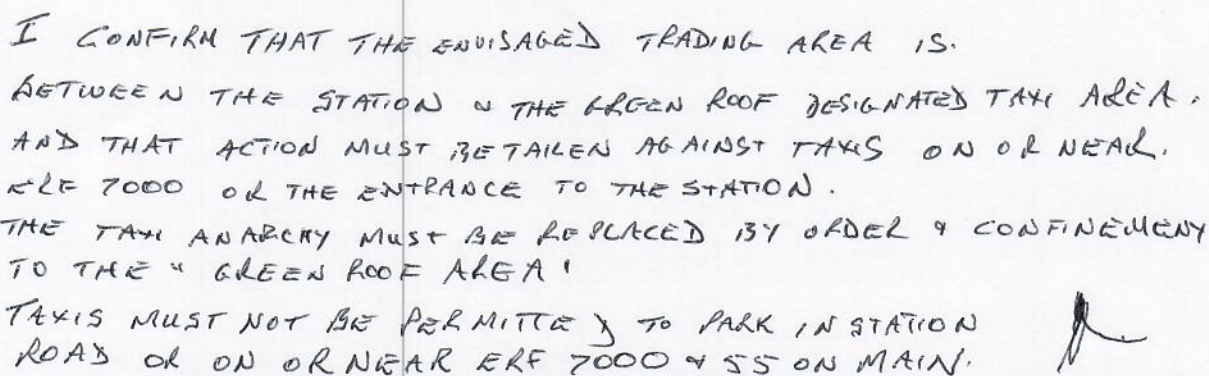 I CONFIRM THAT THE ENVISAGED TRADING AREA IS.
BETWEEN THE STATION & THE GREEN ROOF DESIGNATED TAXI AREA.
AND THAT ACTION MUST BE TAKEN AGAINST TAXIS ON OR NEAR.
ERF 7000 OR THE ENTRANCE TO THE STATION.
THE TAXI ANARCHY MUST BE REPLACED BY ORDER & CONFINEMENT
TO THE "GREEN ROOF AREA'
TAXIS MUST NOT BE PERMITTED TO PARK IN STATION
ROAD OR ON OR NEAR ERF 7000 & 55 ON MAIN.